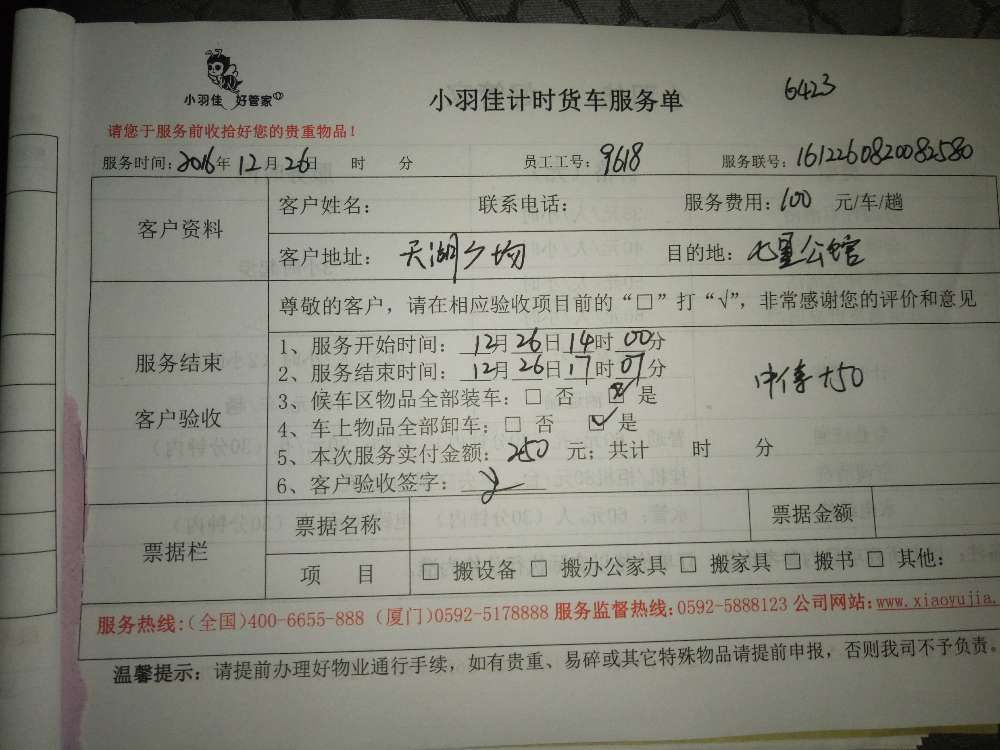 小羽佳 好管家
小羽佳计时货车服务单
6423
请您于服务前收拾好您的贵重物品！
服务时间：2016年12月26日 时 分 员工工号：9618 服务联号：1612260820082580
客户资料
客户姓名： 联系电话： 服务费用：100 元/车/趟
客户地址：天湖广场 目的地：七星公馆
尊敬的客户，请在相应验收项目前的“□”打“√”，非常感谢您的评价和意见
服务结束
客户验收
1、服务开始时间：12月26日14时00分
2、服务结束时间：12月26日17时07分
3、候车区物品全部装车：□ 否 ☑ 是
4、车上物品全部卸车：□ 否 ☑ 是
5、本次服务实付金额：250 元；共计 时 分
6、客户验收签字：
中停 150
票据栏
票据名称 票据金额
项 目 □ 搬设备 □ 搬办公家具 □ 搬家具 □ 搬书 □ 其他：
服务热线：（全国）400-6655-888（厦门）0592-5178888 服务监督热线：0592-5888123 公司网站：www.xiaoyujia.
温馨提示：请提前办理好物业通行手续，如有贵重、易碎或其它特殊物品请提前申报，否则我司不予负责。